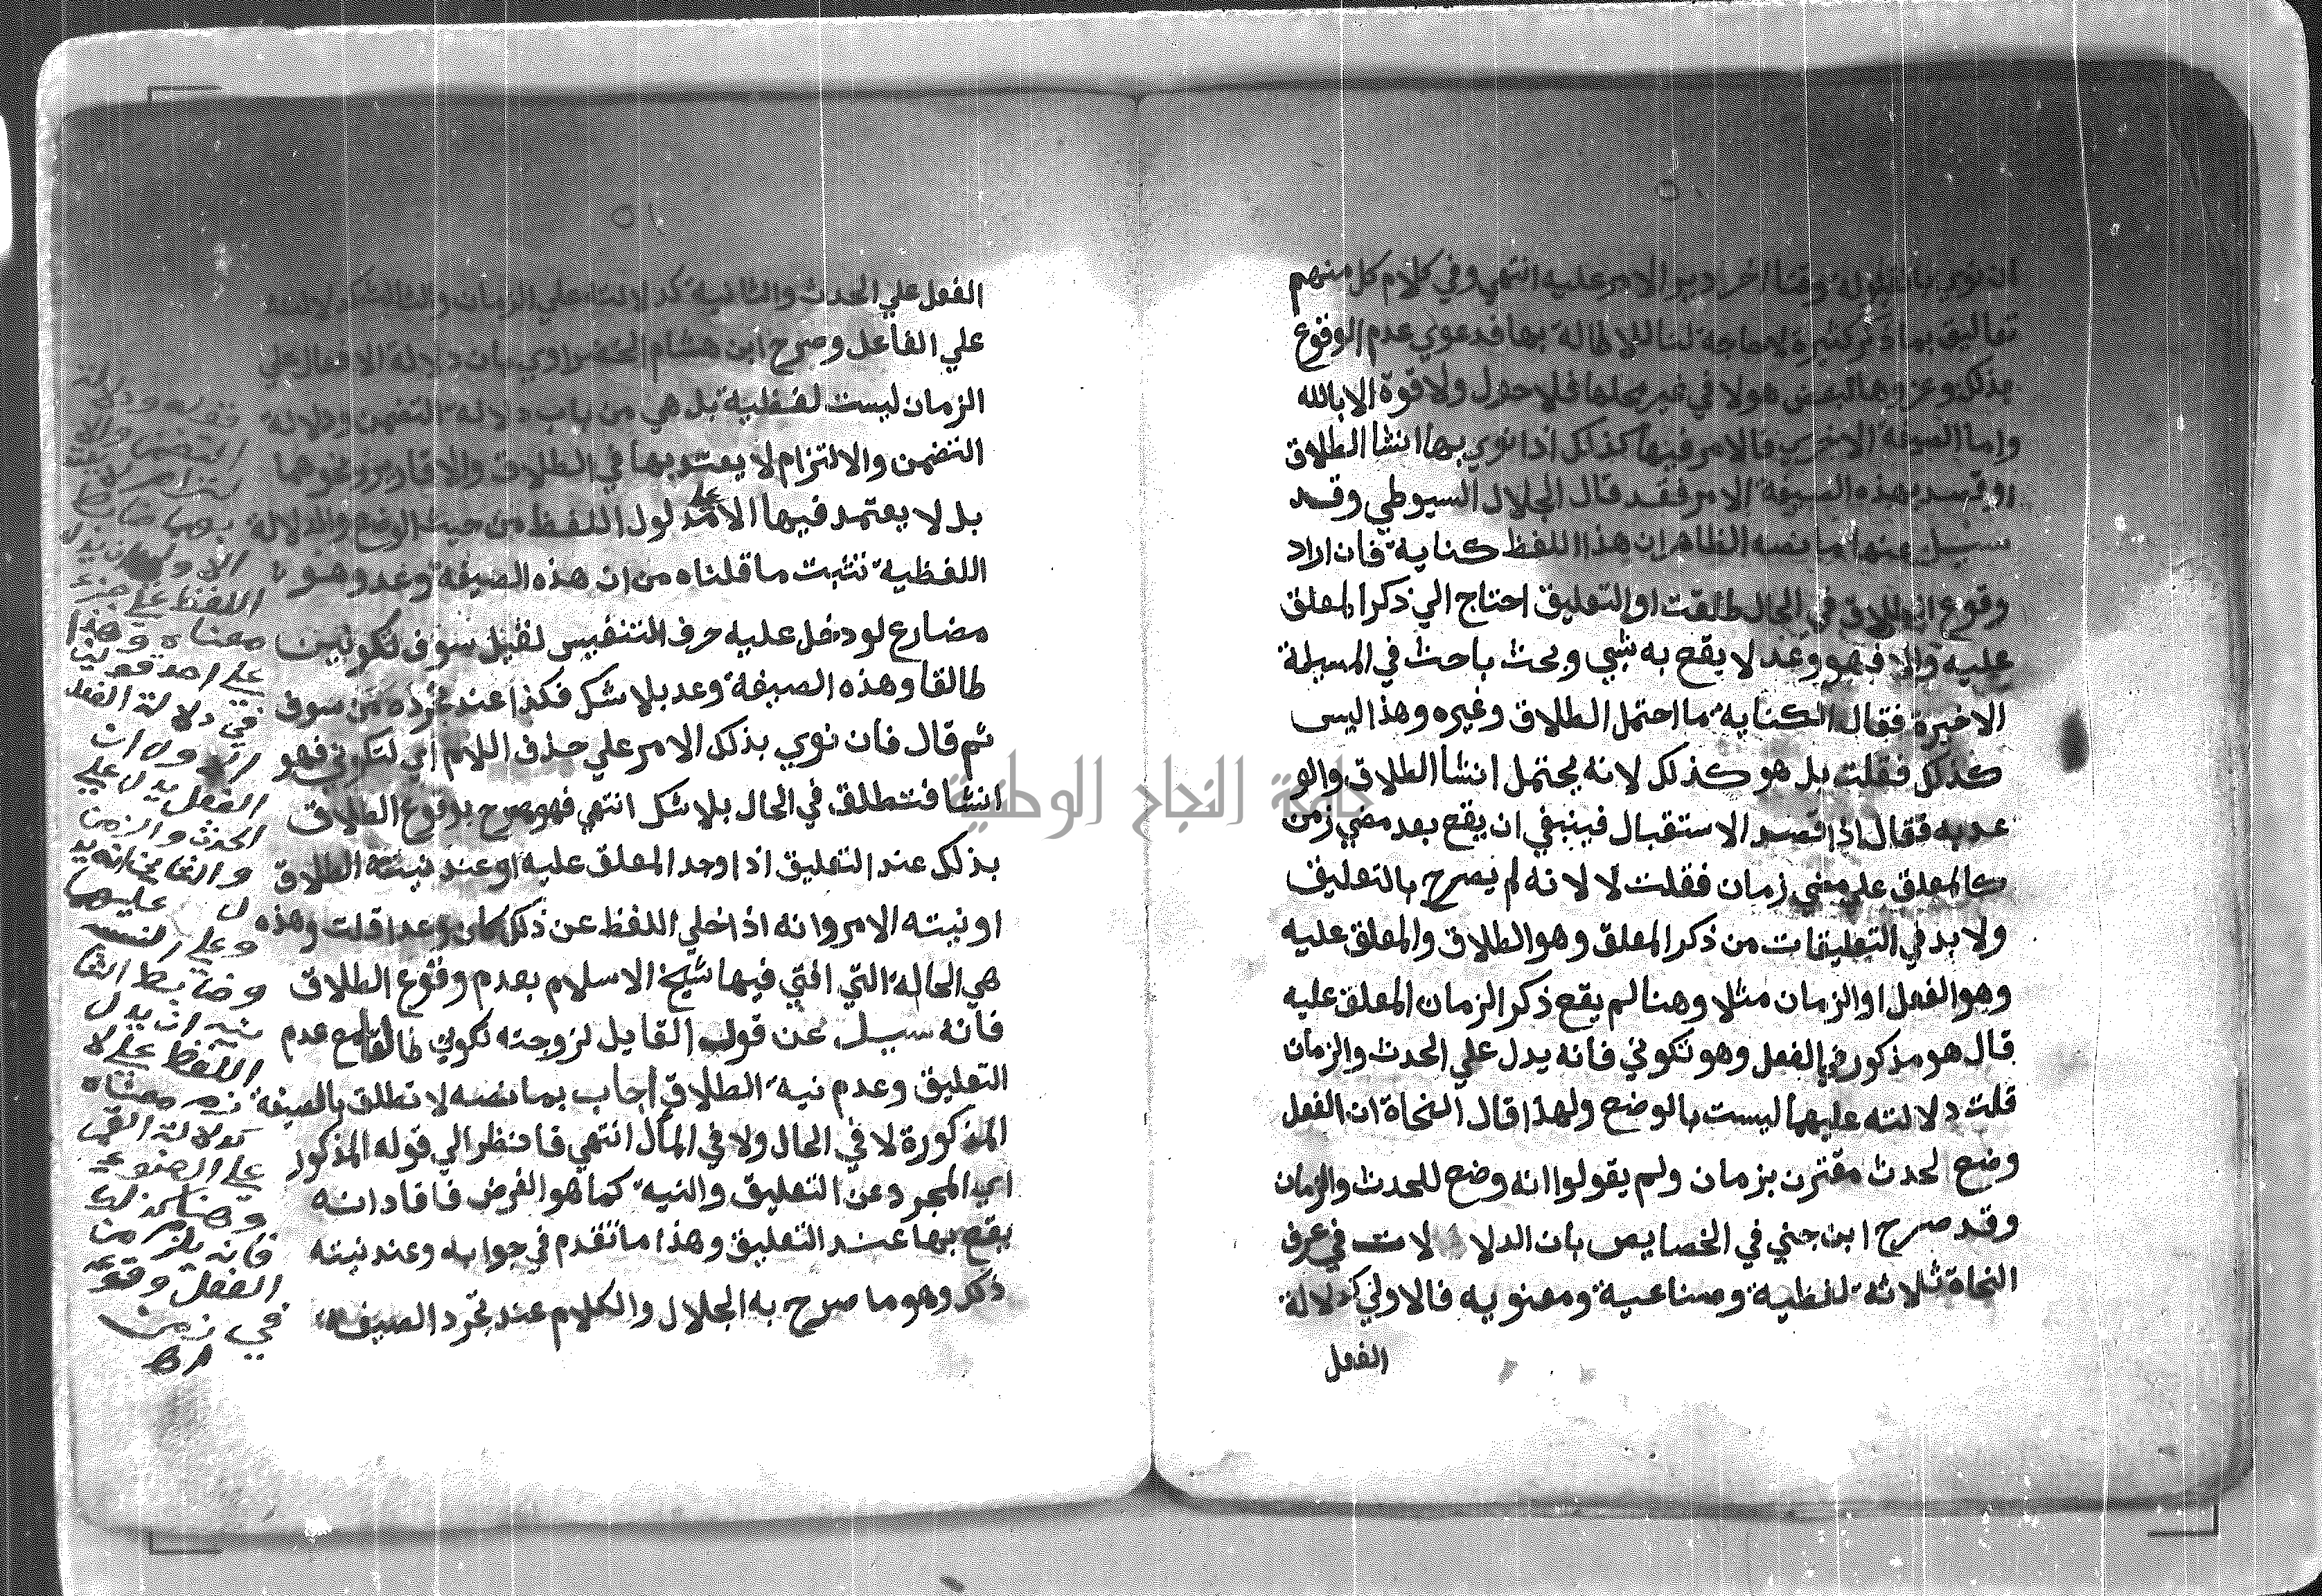 وفي كلام كل منهم
بها فدعوي عدم الوقوع
بذلك وعزوها لبعض هولا في غير محلها فلا حول ولا قوة الا بالله
واما الصيغة الاخري فالامر فيها كذلك اذا نوي بها انشا الطلاق
او قصد بهذه الصيغة الامر فقد قال الجلال السيوطي وقد
سيل عنها ما نصه الظاهر ان هذا اللفظ كناية فان اراد
وقوع الطلاق في الحال طلقت او التعليق احتاج الي ذكر المعلق
عليه والا فهو وعد لا يقع به شي وبحث باحث في المسيلة
الاخيرة فقال الكناية ما احتمل الطلاق وغيره وهذا ليس
كذلك فقلت بل هو كذلك لانه يحتمل انشا الطلاق والو
عد به فقال اذا قصد الاستقبال فينبغي ان يقع بعد مضي زمن
كالمعلق علي مضي زمان فقلت لا لانه لم يصرح بالتعليق
ولا بد في التعليقات من ذكر المعلق وهو الطلاق والمعلق عليه
وهو الفعل او الزمان مثلا وهنا لم يقع ذكر الزمان المعلق عليه
قال هو مذكور في الفعل وهو تكوني فانه يدل علي الحدث والزمان
قلت دلالته عليهما ليست بالوضع ولهذا قال النحاة ان الفعل
وضع لحدث مقترن بزمان ولم يقولوا انه وضع للحدث والزمان
وقد صرح ابن جني في الخصايص بان الدلا لات في عرف
النحاة ثلاثة لفظية وصناعية ومعنويه فالاولي كدلالة
الفعل
الفعل علي الحدث والثانية كدلالته علي الزمان والثالثة كدلالته
علي الفاعل وصرح ابن هشام الخضراوي بان دلالة الافعال علي
الزمان ليست لفظية بل هي من باب دلالة التضمن ودلالة
التضمن والالتزام لا يعتد بها في الطلاق والاقارير ونحوها
بل لا يعتمد فيها الا علي مدلول اللفظ من حيث الوضع والدلالة
اللفظية نثبت ما قلناه من ان هذه الصيغة وعد وهو
مضارع لو دخل عليه حرف التنفيس لقيل سوف تكونين
طالقا وهذه الصيغة وعد بلا شك فكذا عند تجرده من سوف
ثم قال فان نوي بذلك الامر علي حذف اللام اي لتكوني فهو
انشا فتطلق في الحال بلا شك انتهي فهو صرح بوقوع الطلاق
بذلك عند التعليق اذا وجد المعلق عليه او عند نيته الطلاق
او نيته الامر وانه اذا خلي اللفظ عن ذلك كان وعدا قلت وهذه
هي الحالة التي افتي فيها شيخ الاسلام بعدم وقوع الطلاق
فانه سيل عن قول القايل لزوجته تكوني طالقا مع عدم
التعليق وعدم نية الطلاق اجاب بما نصه لا تطلق بالصيغة
المذكورة لا في الحال ولا في المأل انتهي فانظر الي قوله المذكور
اي المجرد عن التعليق والنية كما هو الفرض فافاد انه
يقع بها عند التعليق وهذا ما تقدم في جوابه وعند نيته
ذكر وهو ما صرح به الجلال والكلام عند تجرد الصيغة
قوله ودلالة
التضمن والا
بهما ضابط
الاولي ان يدل
اللفظ علي جزء
معناه وهذا
علي احد قولين
في دلالة الفعل
الفعل يدل علي
الحدث والزمن
عليهما
وضابط الثا
نية ان يدل
اللفظ علي لا
زم معناه
كدلالة
علي الضوء
وهنا كذلك
فانه يلزم من
الفعل وقوعه
في زمن
اهـ
جامعة النجاح الوطنية